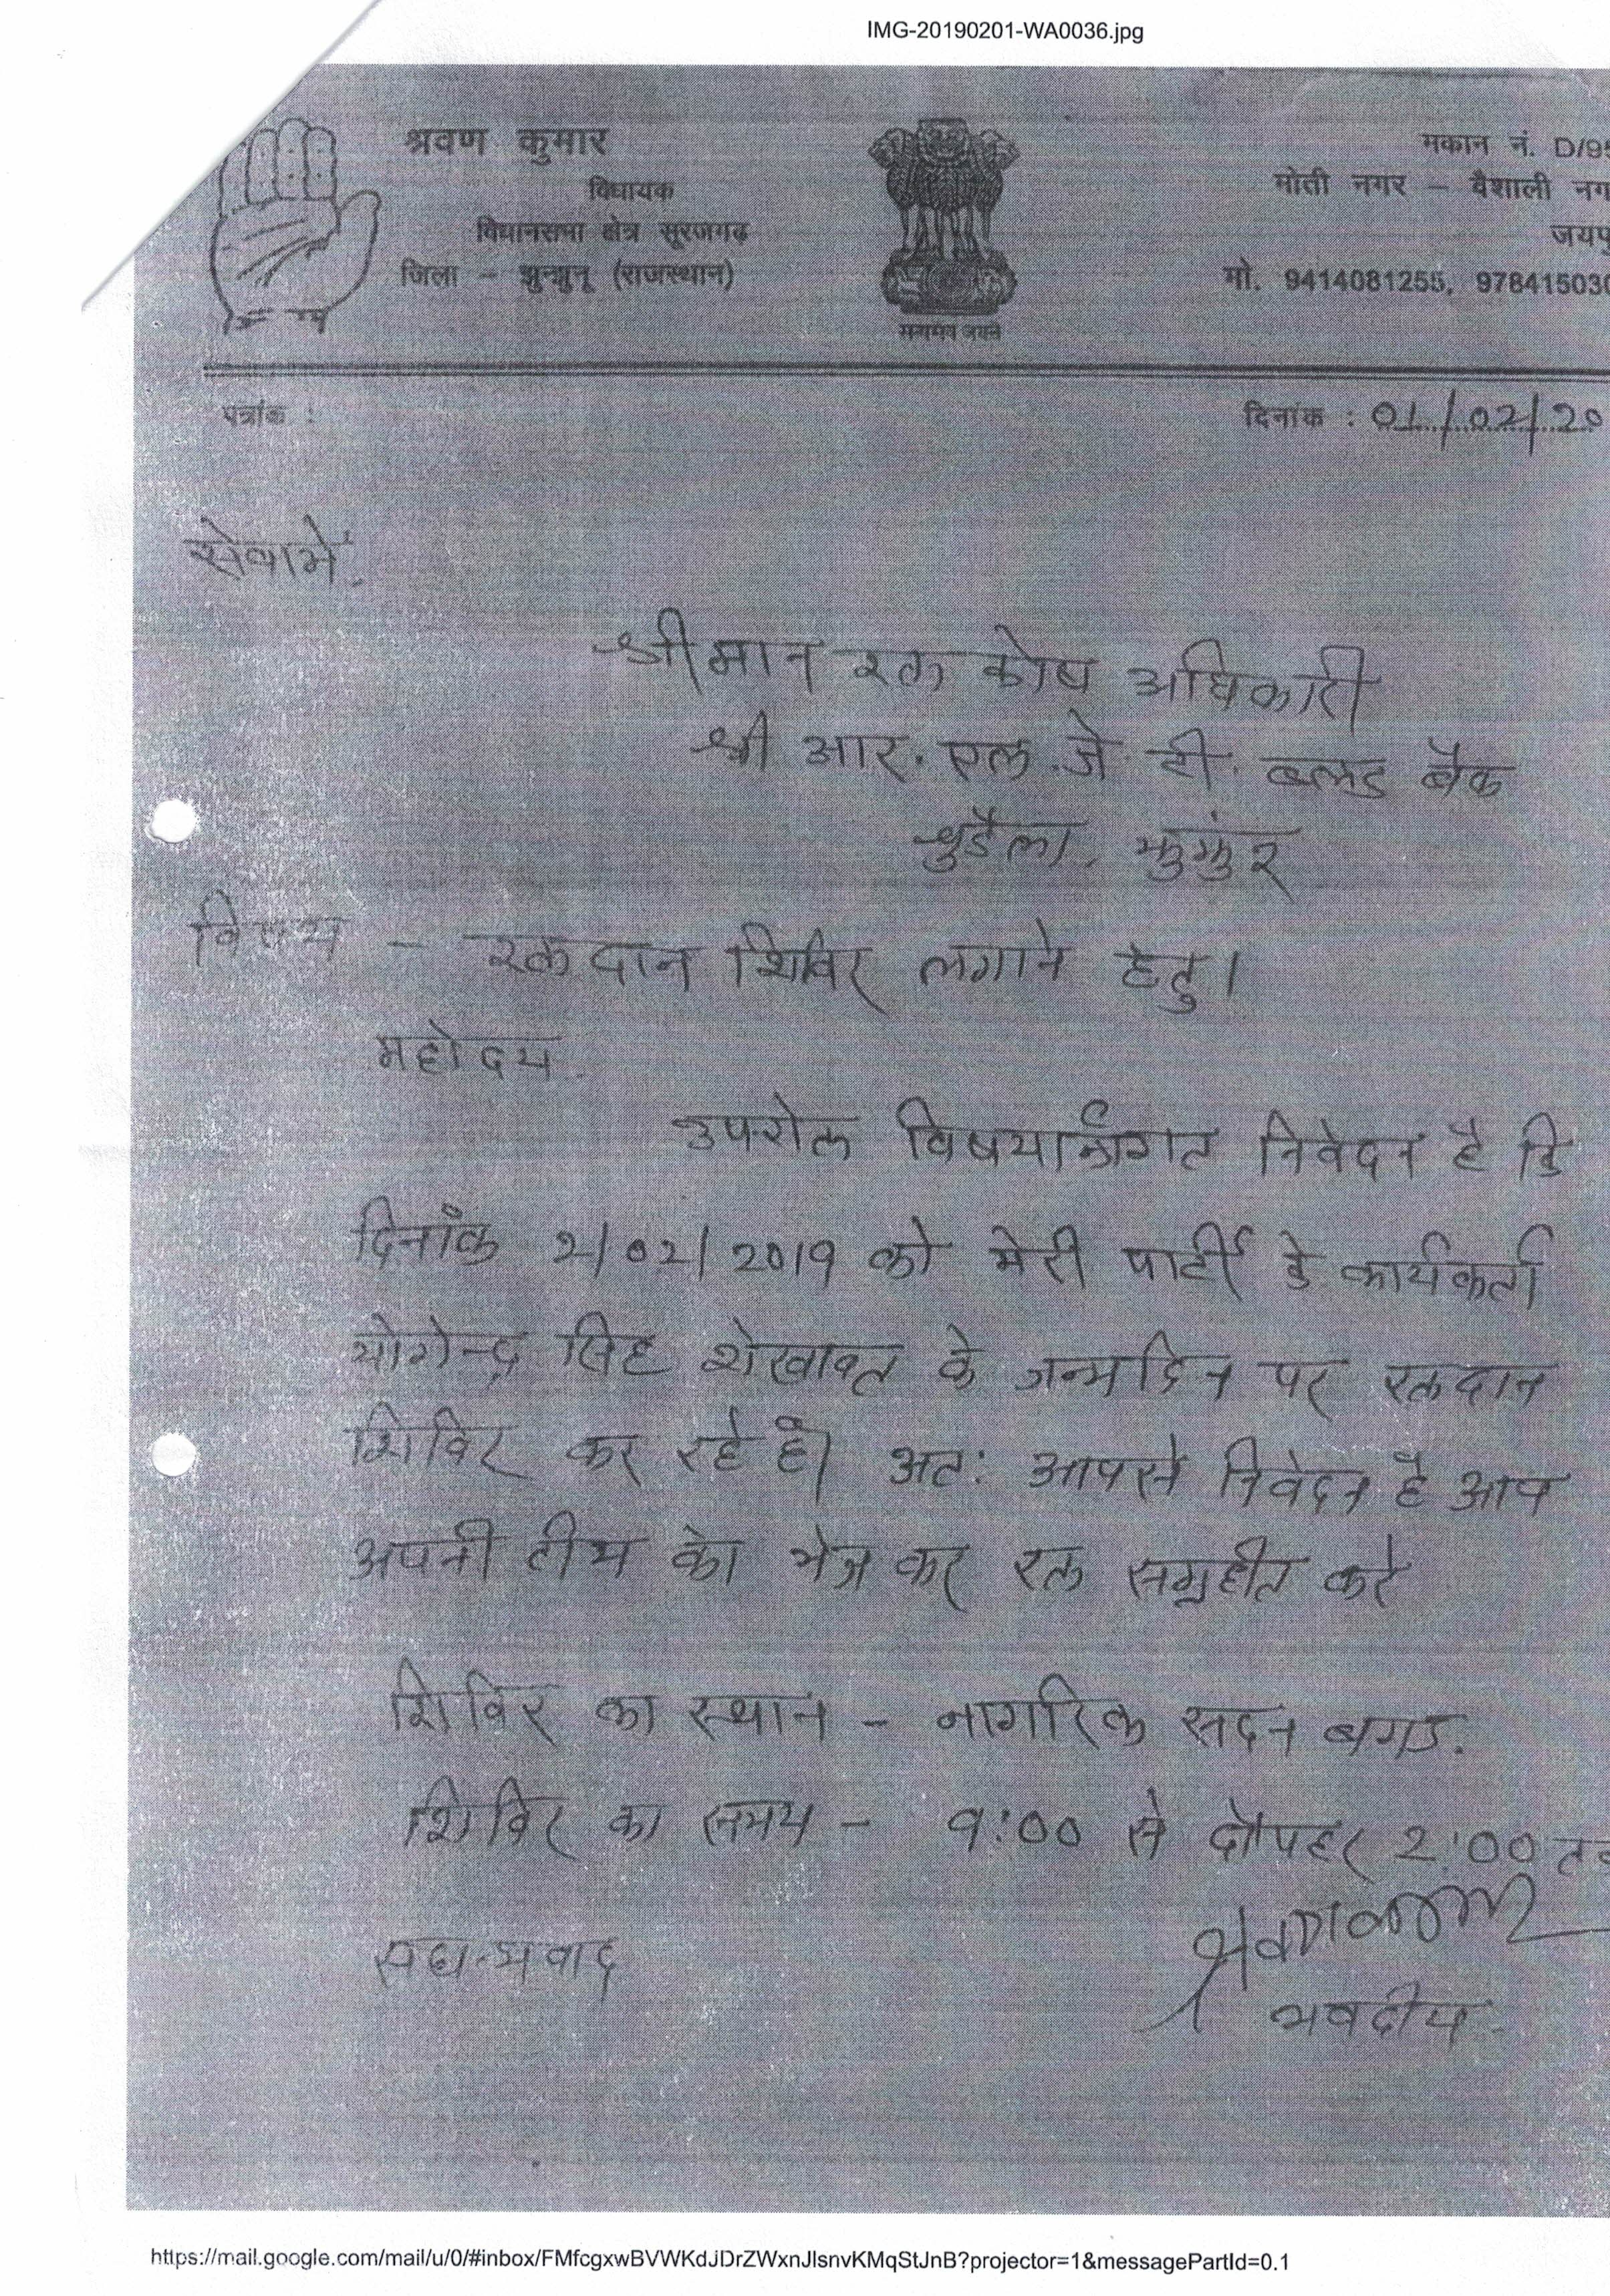 IMG-20190201-WA0036.jpg
श्रवण कुमार
विधायक
विधानसभा क्षेत्र सूरजगढ़
जिला - झुन्झुनू (राजस्थान)
सत्यमेव जयते
मकान नं. D/95
मोती नगर - वैशाली नग
जयपु
मो. 9414081255, 978415030
पत्रांक :
दिनांक : 01/02/20
सेवामें,
श्रीमान रक्त कोष अधिकारी
श्री आर. एल. जे. टी. ब्लड बैंक
झुंझुंनू
विषय - रक्तदान शिविर लगाने हेतु।
महोदय
उपरोक्त विषयान्तर्गत निवेदन है कि
दिनांक 2/02/2019 को मेरी पार्टी के कार्यकर्ता
योगेन्द्र सिंह शेखावत के जन्मदिन पर रक्तदान
शिविर कर रहे है। अतः आपसे निवेदन है आप
अपनी टीम को भेज कर रक्त संग्रहीत करे
शिविर का स्थान - नागरिक सदन बगड.
शिविर का समय - 9:00 से दोपहर 2:00 तक
सधन्यवाद
श्रवण कुमार
भवदीय
https://mail.google.com/mail/u/0/#inbox/FMfcgxwBVWKdJDrZWxnJlsnvKMqStJnB?projector=1&messagePartId=0.1